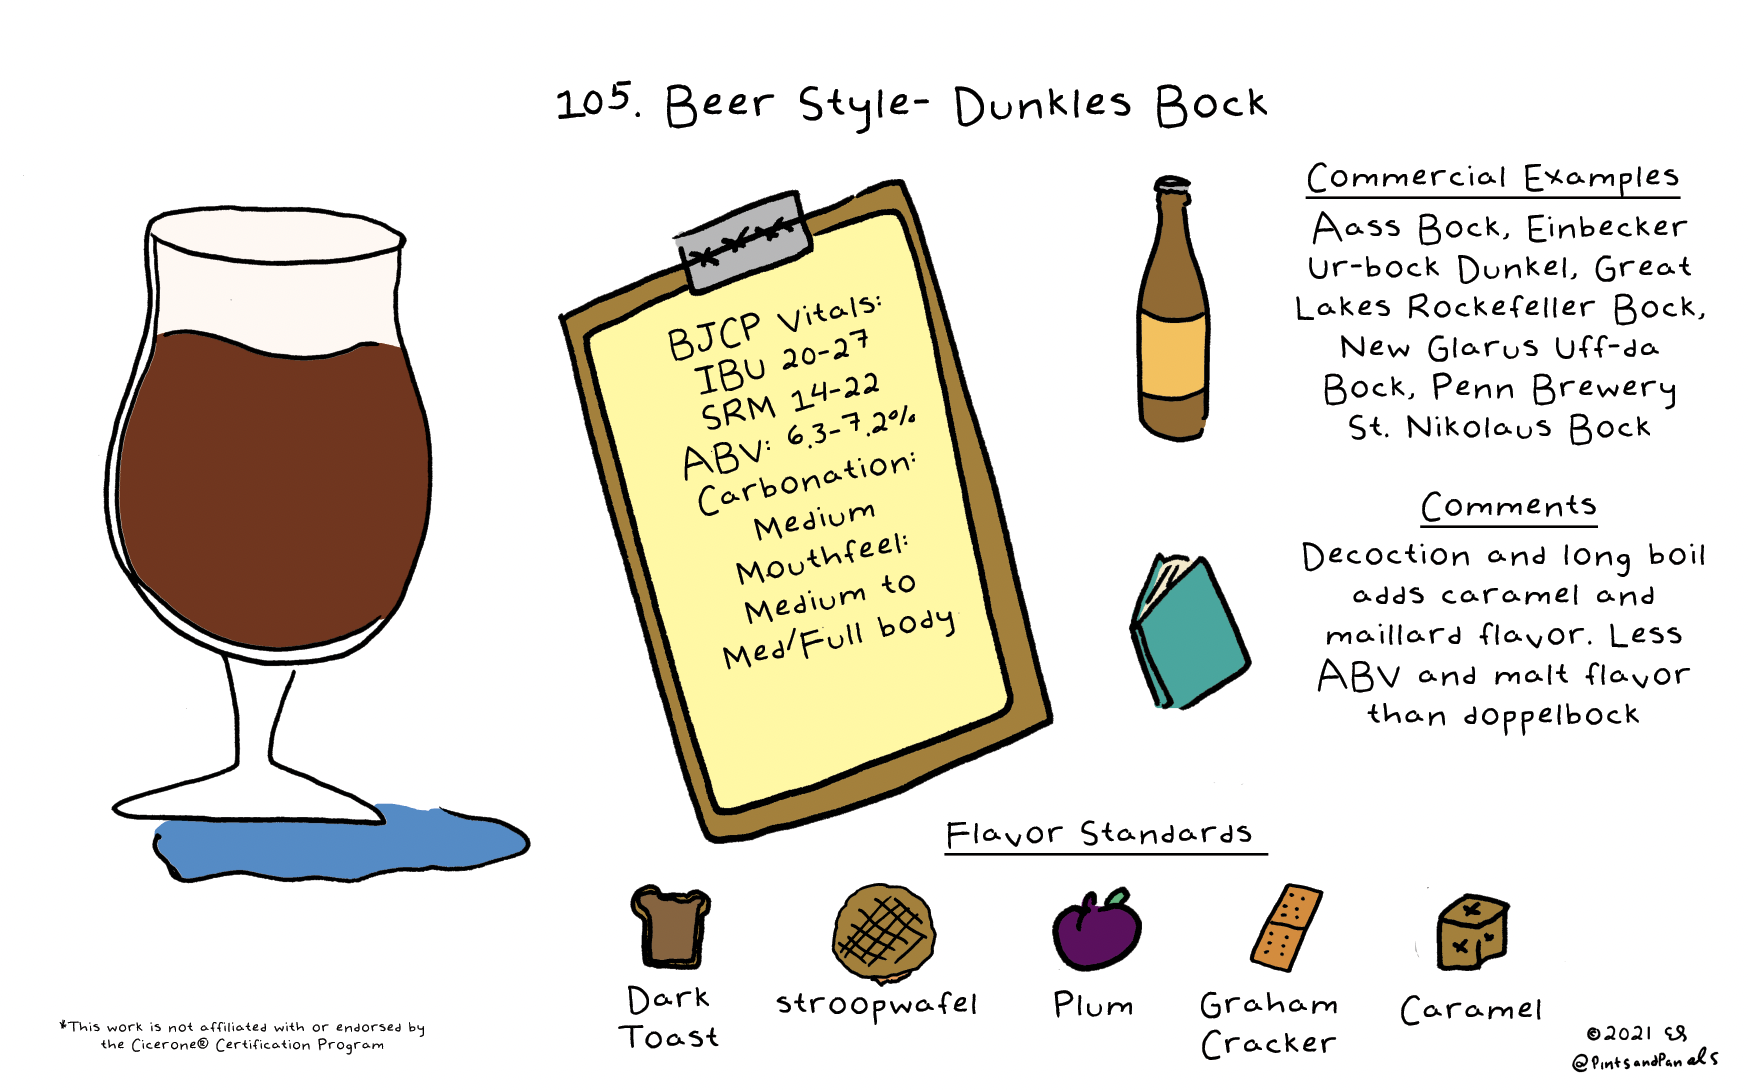 105. Beer Style- Dunkles Bock
BJCP Vitals:
IBU 20-27
SRM 14-22
ABV: 6.3-7.2%
Carbonation:
Medium
Mouthfeel:
Medium to
Med/Full body
Commercial Examples
Aass Bock, Einbecker
Ur-bock Dunkel, Great
Lakes Rockefeller Bock,
New Glarus Uff-da
Bock, Penn Brewery
St. Nikolaus Bock
Comments
Decoction and long boil
adds caramel and
maillard flavor. Less
ABV and malt flavor
than doppelbock
Flavor Standards
Dark
Toast
stroopwafel
Plum
Graham
Cracker
Caramel
*This work is not affiliated with or endorsed by
the Cicerone® Certification Program
©2021
@PintsandPanels